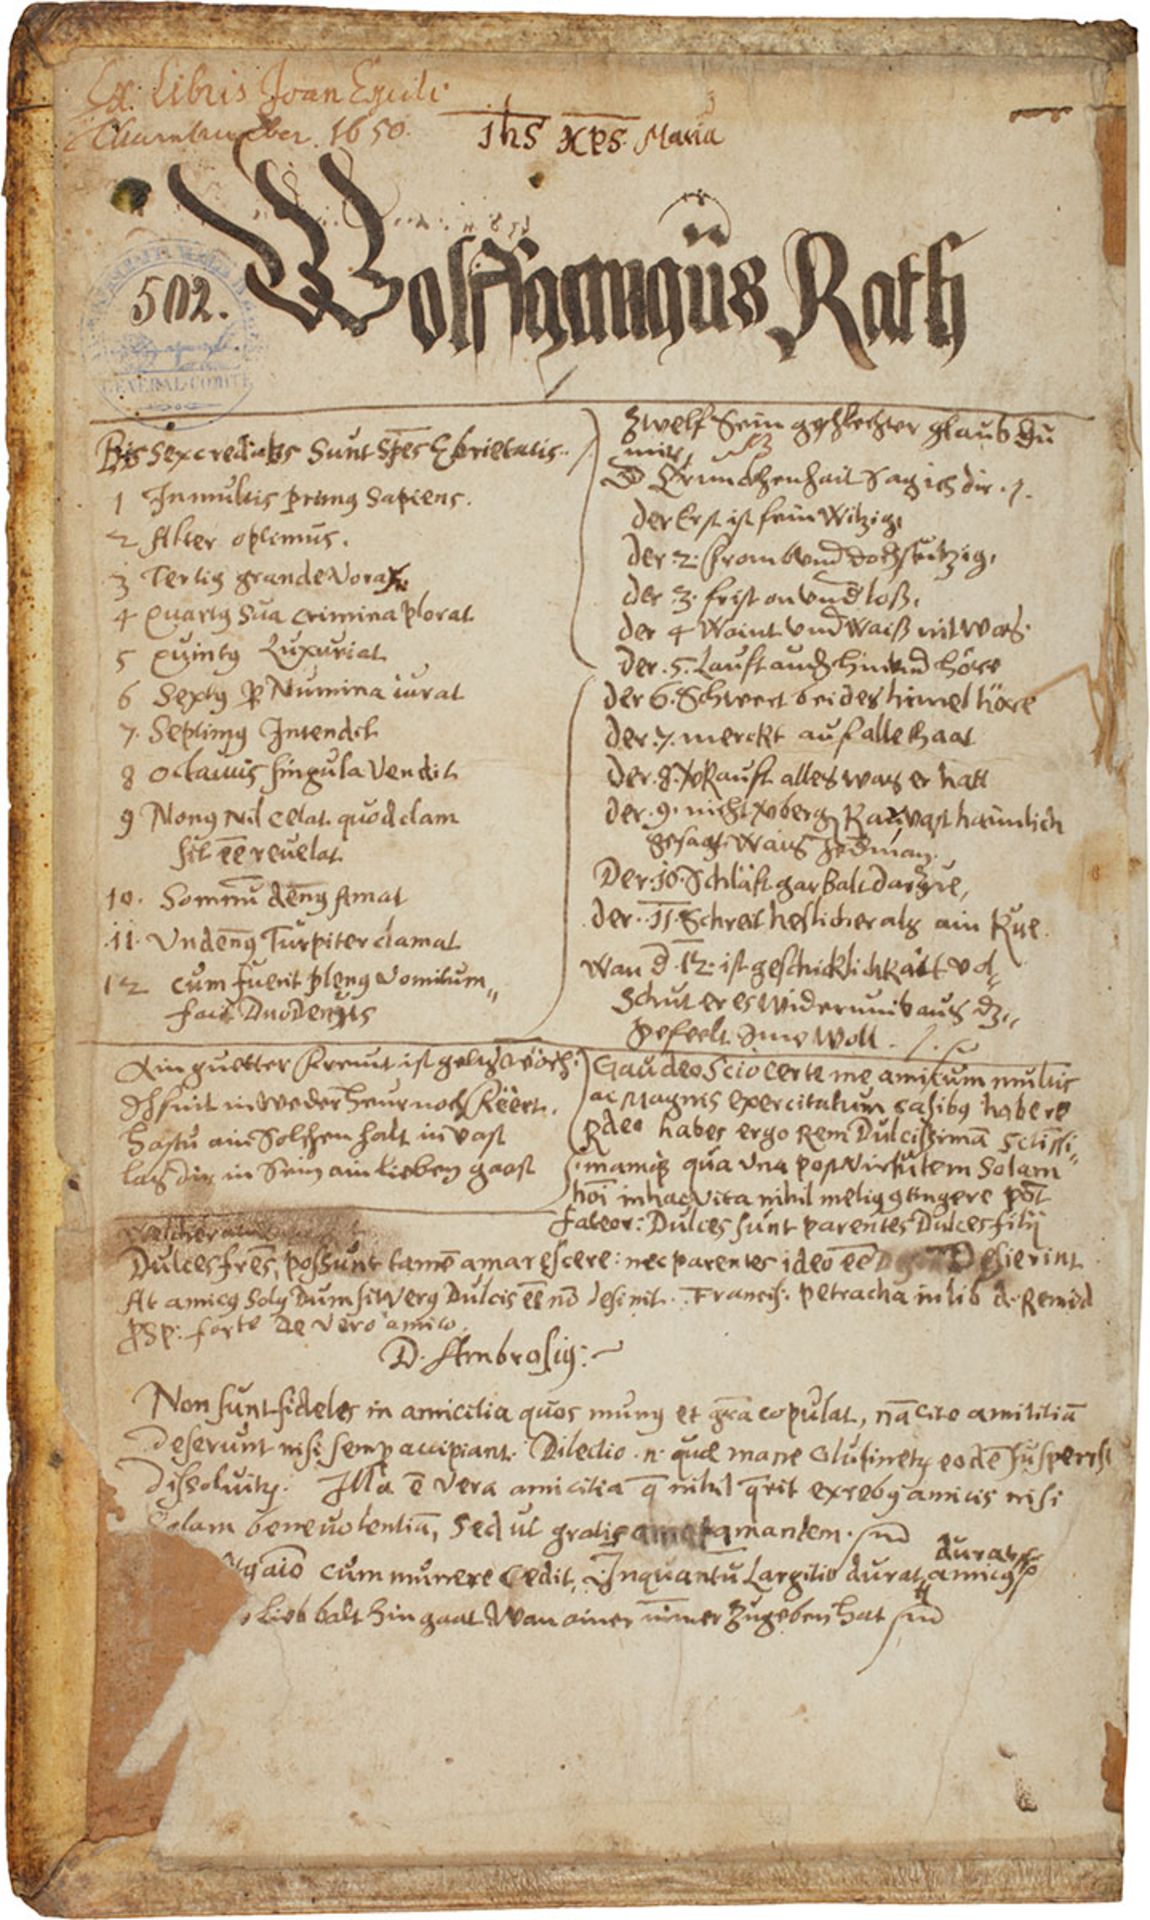 Ex Libris Joan Egidi
1650.
Jhs Xps. Maria
502.
GENERAL-COMITE
Wolfganngüs Rath
Bis Sex credatis Sunt Spēs Ebrietatis.
1 In multis primꝯ Sapiens.
2 Alter optimus.
3 Tertiꝯ grande Vorax
4 Quartꝯ Sua Crimina plorat
5 Quintꝯ Luxuriat
6 Sextꝯ ꝑ Numina iurat
7. Septimꝯ Intendit
8 Octauus singula Vendit
9 Nonꝯ Nil Celat quod clam
sit ēē reuelat
10. Somnū denꝯ Amat
11. Undenꝯ Turpiter clamat
12 Cum fuerit plenꝯ Vomitum
fait Duodenus
Zwelf Sein geschlechter glaub du
mir,
D Trunckhenhait Sag ich dir.
der Erst ist fein Witzig,
der .2. from Vnd doch stutzig,
der .3. frist on Vnd loß,
der 4 Waint Vnd Waiß nit Was.
der .5. Laufft auch hin Vnd höre
der 6. Schwert bei des himel höre
der .7. merckt auf alle thaat
der .8. Vkaufft alles Was er hatt
der .9. nicht Vberg Kaz, was haimlich
gesagt Wais Jedman.
Der .10. Schläft gar Bald darzue,
der .11. Schreit heslicher als ain Kue.
Wan d .12. ist geschicklichkait vol
Schut er es widerumb aus dz
gefeelt Ime Woll.
Ain guetter freint ist geltz Wörth.
Ich find in Weder heur noch fëert.
hastu ain Solchen halt in vast
las dir in Sein ain lieben gaast
Gaudeo Scio Certe me amicum multis
ac Magnis exercitatum casibꝯ habere
Rdeo habes ergo Rem Dulcissimā Sctissi
mamqꝫ qua Vna post Virtutem Solam
hōi in hac Vita nihil meliꝯ gtingere pōt
fateor: Dulces sunt parentes Dulces filij
Dulces frēs, possunt tamē amarescere: nec parentes ideo ēē Desierint
At amicꝯ Solꝯ Dum sit Verꝯ Dulcis ēē nō desinit. Francis: Petracha in lib de Remed
ꝓsp: forte De Vero amico.
D. Ambrosiꝯ:
Non sunt fideles in amicitia quos munꝯ et grā copulat, nā Cito amititiā
Deserunt nisi semp accipiant. Dilectio .n. quæ mane Glutinetꝛ eodē
dissoluitꝛ. Illa ē Vera amicitia q nihil qrit ex rebꝯ amicis nisi
Solam beneuolentiā, Sed ut gratis amantem.
Cum munere Cedit, Inquantū Largitio durat, durat
amicꝯ
Lieb balt hin gaat Wan ainer nimer zugeben hat